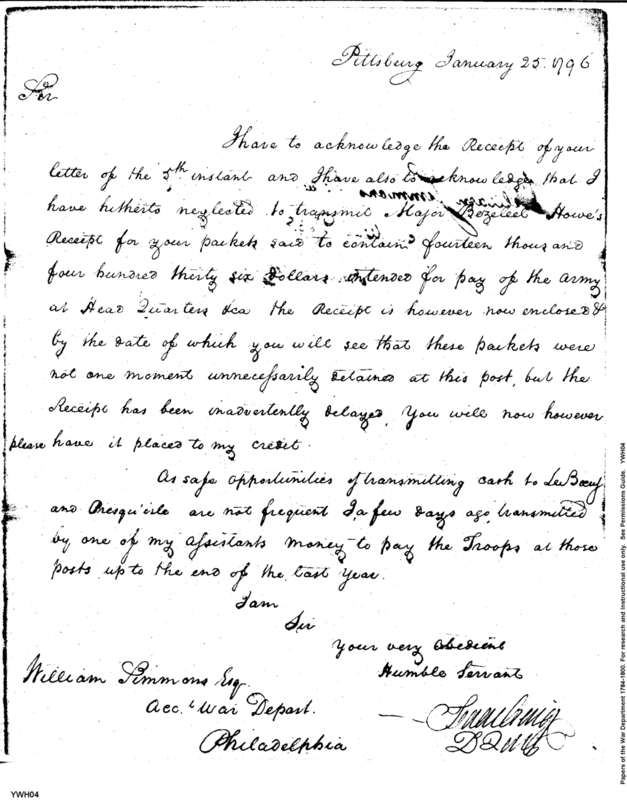 Pittsburg January 25. 1796
Sir
I have to acknowledge the Receipt of your
letter of the 5th instant and I have also to acknowledge that I
have hitherto neglected to transmit Major Bezeleel Howe's
Receipt for your packets said to contain fourteen thousand
four hundred thirty six Dollars intended for pay of the Army
at Head Quarters &ca the Receipt is however now enclosed &
by the date of which you will see that these packets were
not one moment unnecessarily detained at this post, but the
Receipt has been inadvertently delayed, You will now however
please have it placed to my credit.
As safe opportunities of transmitting cash to LeBœuf
and Presqu'isle are not frequent I a few days ago, transmitted
by one of my Assistants money to pay the Troops at those
posts up to the end of the last Year.
I am
Sir
Your very obedient
Humble Servant
William Simmons Esq.
Acct War Depart.
Philadelphia
Isaac Craig
DQMG
YWH04
Papers of the War Department 1784-1800. For research and instructional use only. See Permissions Guide. YWH04